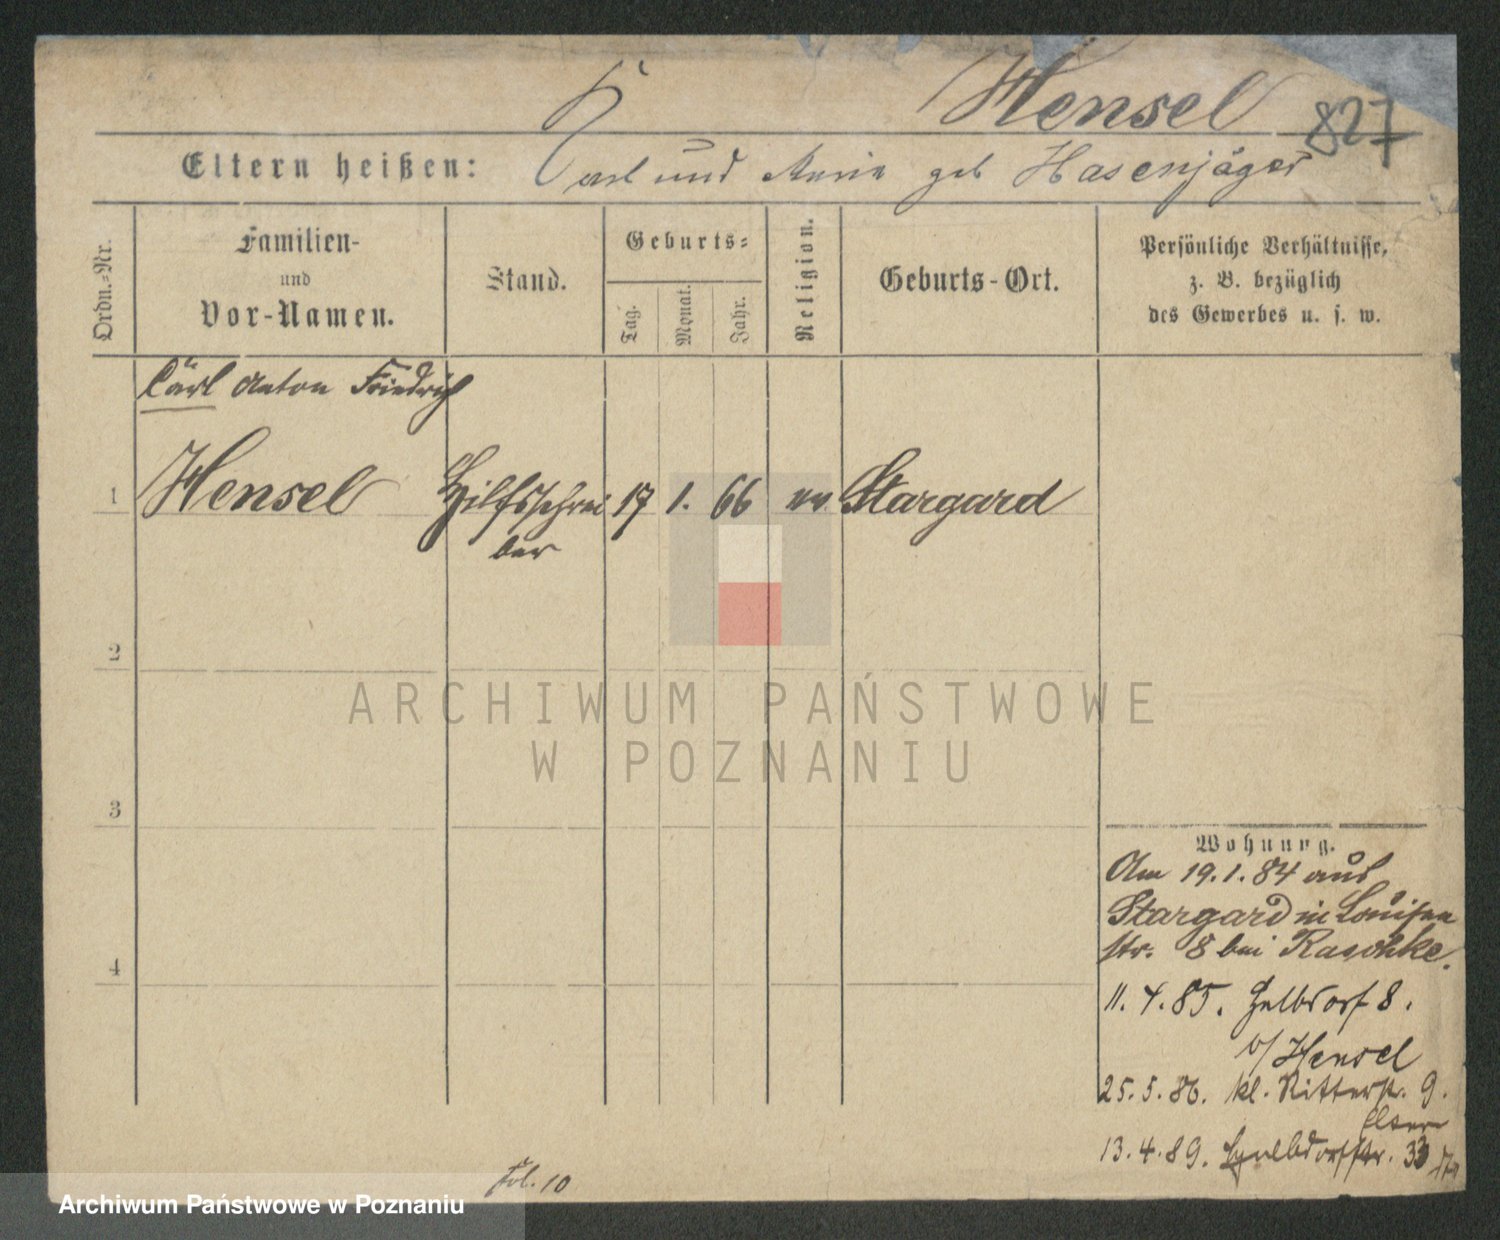 Hensel 827
Eltern heißen: Carl und Marie geb Hasenjäger
Ordn.-Nr.
Familien-
und
Vor-Namen.
Stand.
Geburts-
Tag.
Monat.
Jahr.
Religion.
Geburts-Ort.
Persönliche Verhältnisse,
z. B. bezüglich
des Gewerbes u. s. w.
Carl Anton Friedrich
1 Hensel Hilfsschrei 17 1. 66 ev. Stargard
ber
2
3
4
ARCHIWUM PAŃSTWOWE
W POZNANIU
Wohnung.
Am 19.1.84 aus
Stargard in Louisen
str. 8 bei Raschke.
11.4.85. 8.
b/ Hensel
25.5.86. kl. Ritterstr. 9.
Eltern
13.4.89. 33
Fol. 10
Archiwum Państwowe w Poznaniu